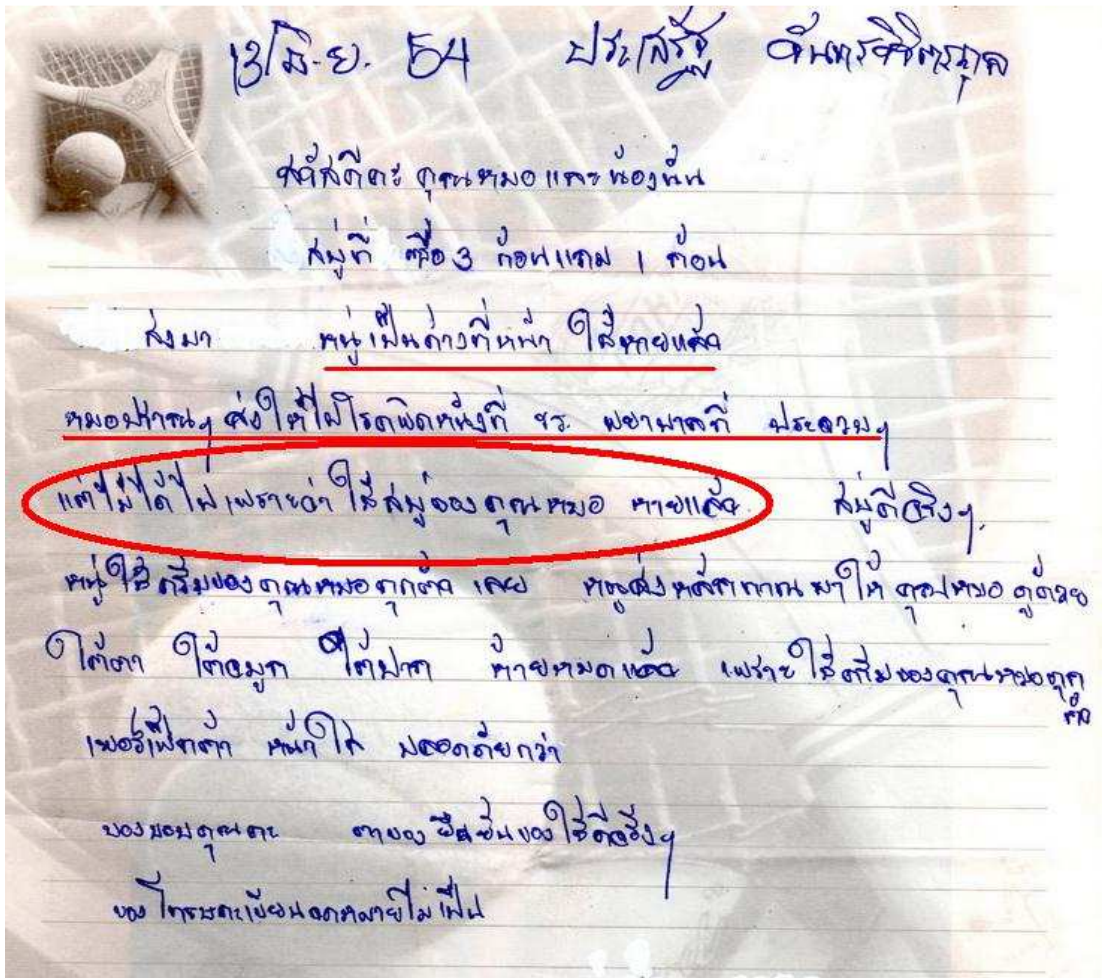 13 มิ.ย. 54 ประเสริฐ
สวัสดีคะ คุณหมอและน้องนัน
สบู่ที่ ซื้อ 3 ก้อนแถม 1 ก้อน
ส่งมา หนูเป็นด่างที่หน้า ใช้หายแล้ว
หมอปราณๆ ส่งให้ไปโรคผิดหนังที่ รร. พยาบาลที่ ประจวบๆ
แต่ไม่ได้ไปเพราะว่าใช้สบู่ของคุณหมอ หายแล้ว สบู่ดีจริงๆ.
หนูใช้ครีมของคุณหมอทุกตัว เลย หนูส่งหลักถานมาให้คุณหมอดูด้วย
ใต้ตา ใต้จมูก ใต้ปาก ห้ายหมดแล้ว เพราะใช้ครีมของคุณหมอทุก
ตัว
เพอร์เฟคต้า หน้าใส ปลอดภัยกว่า
ของขอบคุณคะ ตาของ ยืนของใช้ดีจริงๆ
ของโทรษคะเขียนจดหมายไม่เป็น